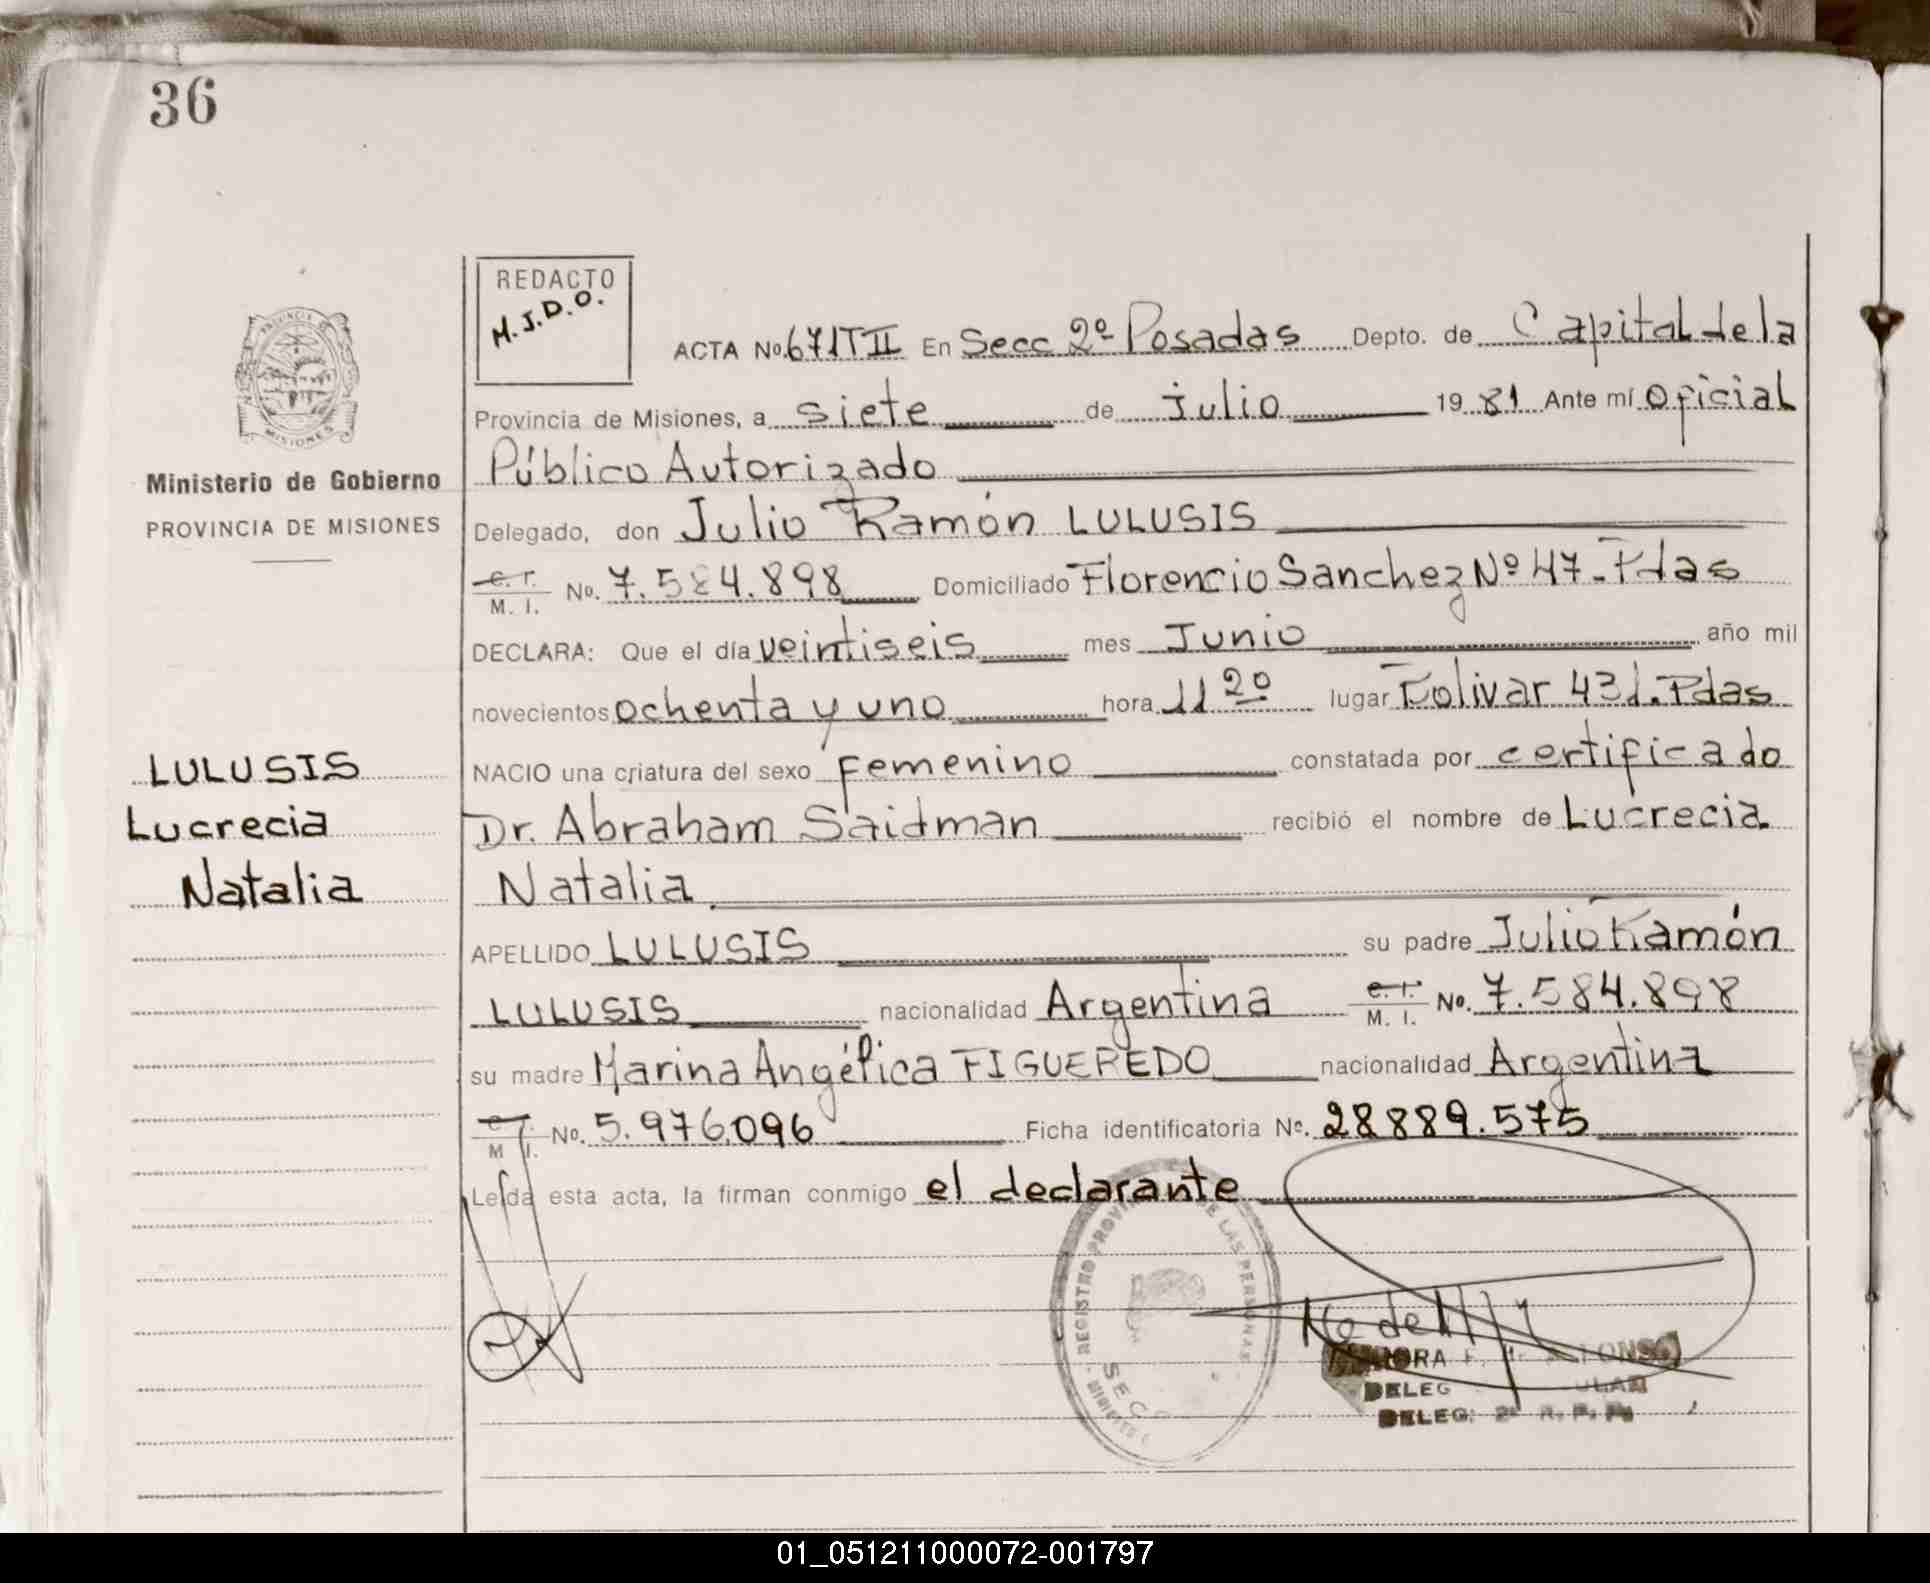 36
REDACTO
M.J.D.O.
ACTA No. 671 T II En Secc 2º Posadas Depto. de Capital de la
Provincia de Misiones, a siete de julio 1981 Ante mí Oficial
Público Autorizado
Ministerio de Gobierno
PROVINCIA DE MISIONES
Delegado, don Julio Ramón LULUSIS
C. I. M. I. No. 7.584.898 Domiciliado Florencio Sanchez Nº 47 - Pdas
DECLARA: Que el día veintiseis mes Junio año mil
novecientos ochenta y uno hora 11 20 lugar Bolivar 431. Pdas
NACIO una criatura del sexo femenino constatada por certificado
Dr. Abraham Saidman recibió el nombre de Lucrecia
Natalia
LULUSIS
Lucrecia
Natalia
APELLIDO LULUSIS su padre Julio Ramón
LULUSIS nacionalidad Argentina C. I. M. I. No. 7.584.898
su madre Marina Angélica FIGUEREDO nacionalidad Argentina
M. I. No. 5.976.096 Ficha identificatoria No. 28889.575
Leída esta acta, la firman conmigo el declarante
REGISTRO PROVIN DE LAS PERSONAS
SECC
DELEG
DELEG. 2ª R. P. P.
01_051211000072-001797